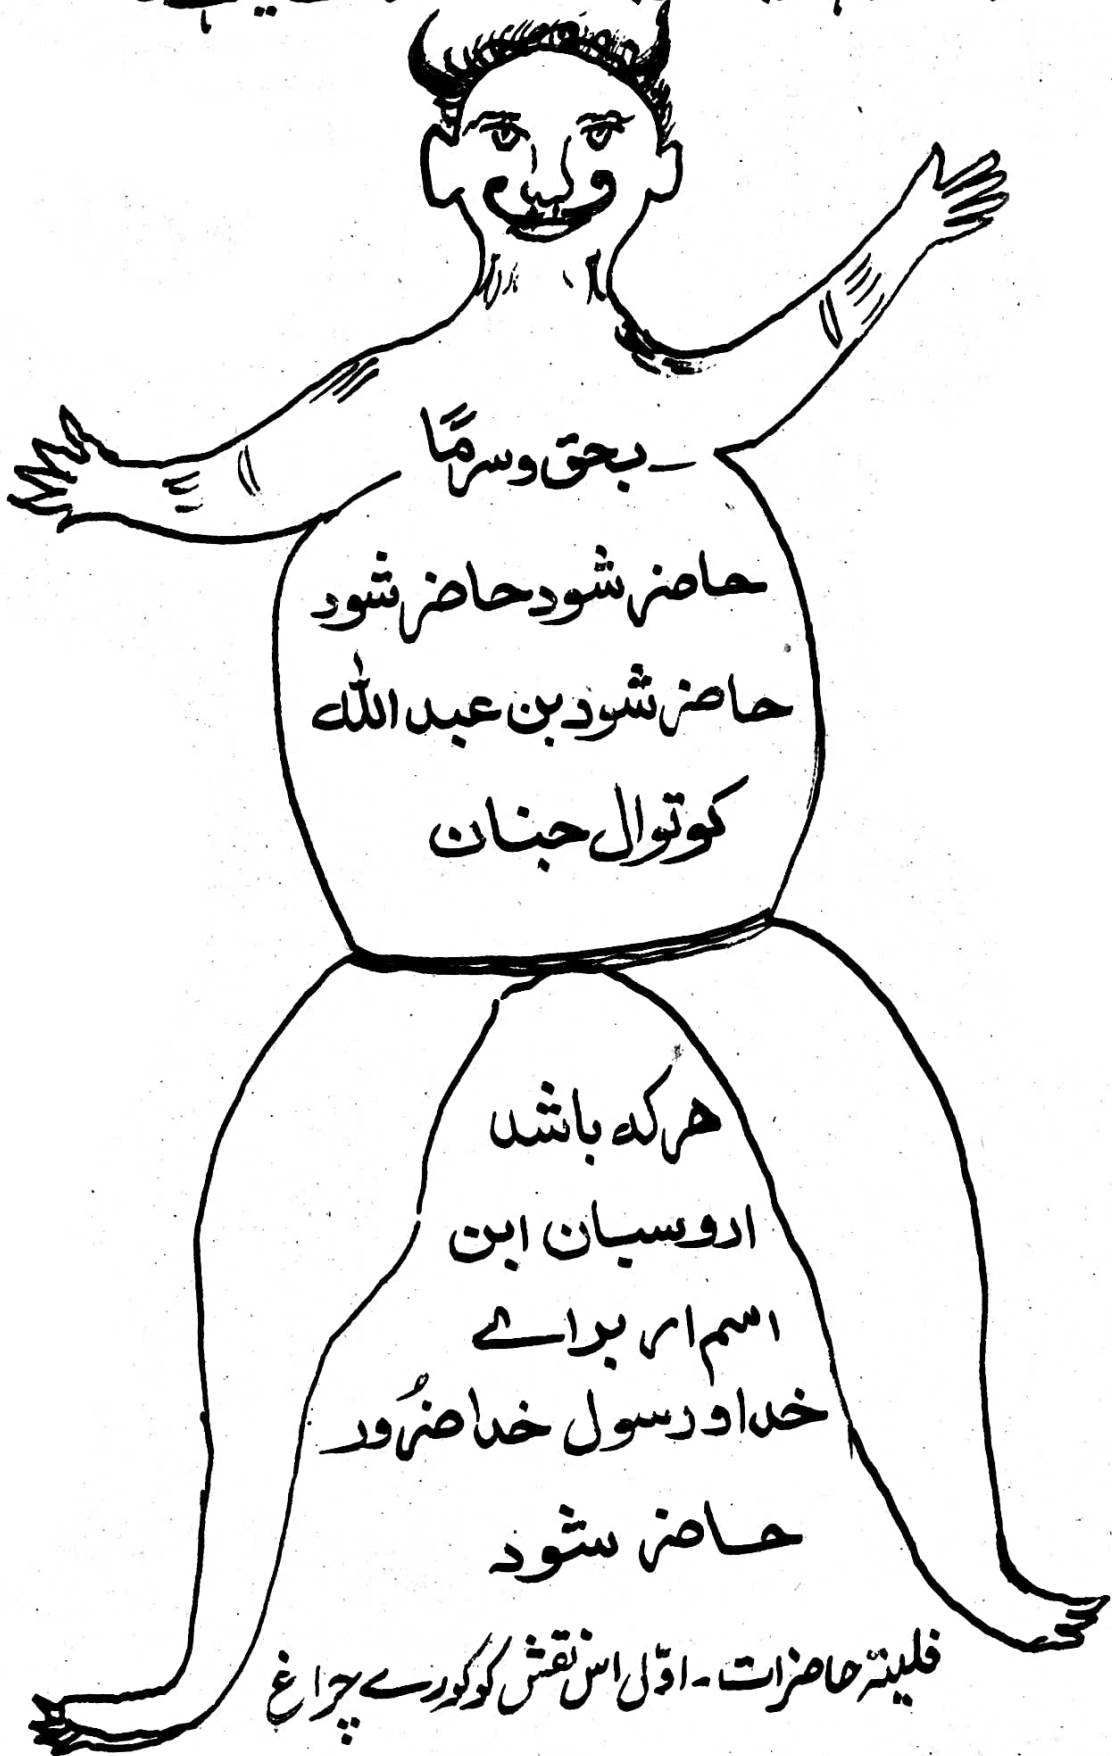 بحق وسرمًا
حاضر شود حاضر شود
حاضر شود بن عبد الله
کوتوال جنان
هرکه باشد
اروسبان ابن
اسم ار براے
خدا و رسول خدا ضرُور
حاضر شود
فلیتہ حاضرات۔ اوّل اس نقش کو کورے چراغ